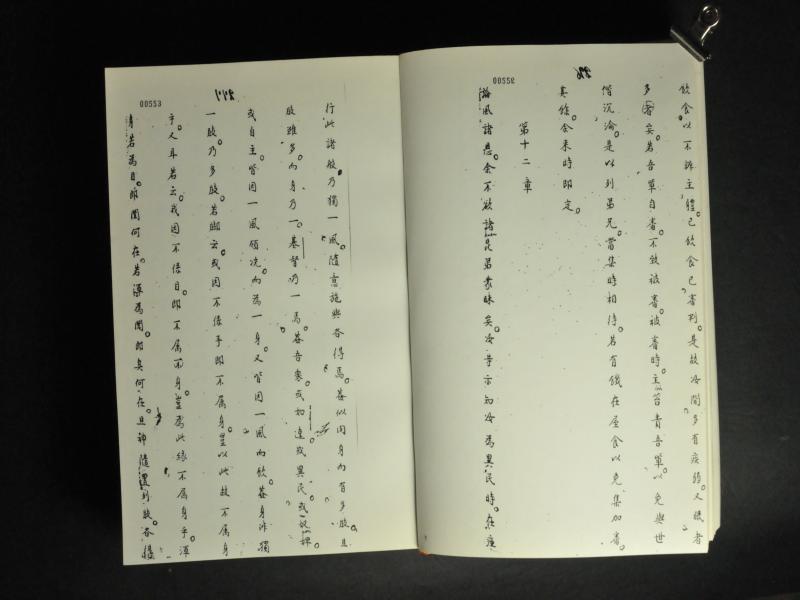 00552
飲食以不辨主體。已飲食已審判。是故汝間多有疾弱。又眠者
多矣。若吾輩自審。不致被審。被審時。主笞責吾輩。以免與世
偕沉淪。是以列弟兄。當集時相待。若有饑在屋食以免集加審。
其餘余來時即定。
第十二章
論風諸恩。余不欲諸昆弟蒙昧矣。汝等亦知汝為異民時。在瘂
00553
行此諸般乃獨一風。隨意施與各得焉。蓋似因身而有多肢。且
肢雖多。而身乃一。基督乃一焉。蓋吾衆。或如達或異民。或奴婢
或自主。皆因一風領洗而為一身。又皆因一風而飲。蓋身非獨
一肢。乃多肢。若脚云。或因不係手即不属身。豈以此故不属身
乎。又耳若云。我因不係目。即不属身。豈為此緣不属身乎。渾
身若為目。即聞何在。若渾為聞。即臭何在。且神隨列肢。各